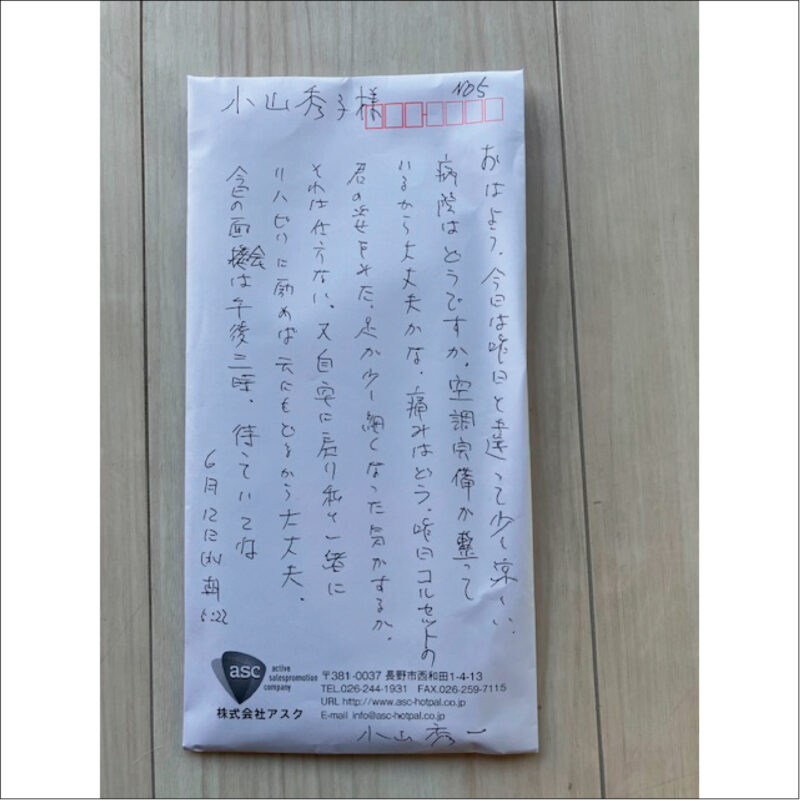 小山秀子様
No5
おはよう、今日は昨日と違って少し涼しい、
病院はどうですか。空調完備が整って
いるから大丈夫かな、痛みはどう。昨日コルセットの
君の姿をみた、足が少し細くなった気がするが、
それは仕方ない、又自宅に戻り私と一緒に
リハビリに励めば元にもどるから大丈夫。
今日の面会は午後三時、待っていてな
6月12日 朝
5:22
asc
active
salespromotion
company
株式会社アスク
〒381-0037 長野市西和田1-4-13
TEL.026-244-1931 FAX.026-259-7115
URL http://www.asc-hotpal.co.jp
E-mail info@asc-hotpal.co.jp
小山秀一